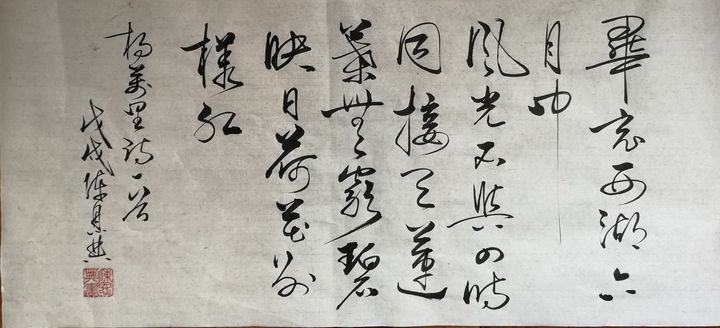 畢竟西湖六
月中
風光不與四時
同接天蓮
葉無窮碧
映日荷花別
樣紅
楊萬里詩一首
戊戌陳具典